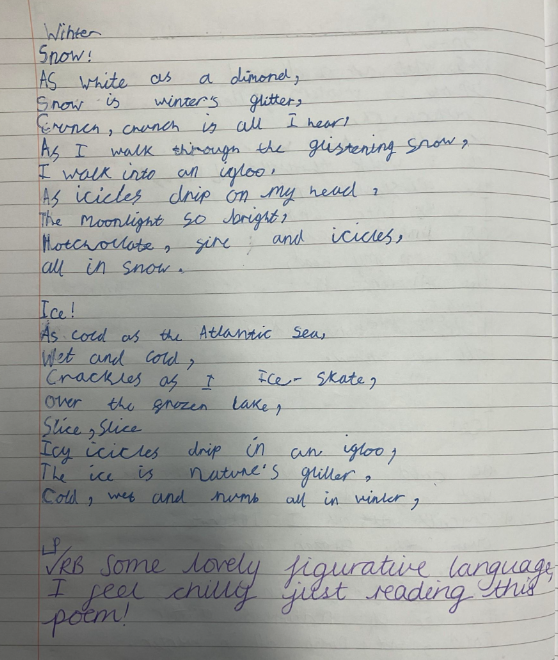 Winter
Snow!
As white as a dimond,
Snow is winter's glitter,
Crunch, crunch is all I hear,
As I walk through the glistening snow,
I walk into an igloo,
As icicles drip on my head,
The Moonlight so bright,
Hotchoclate, fire and icicles,
all in snow.
Ice!
As cold as the Atlantic sea,
Wet and cold,
Crackles as I Ice-Skate,
over the frozen lake,
Slice, Slice
Icy icicles drip in an igloo,
The ice is nature's glitter,
Cold, wet and numb all in winter,
√RB Some lovely figurative language,
I feel chilly just reading this
poem!